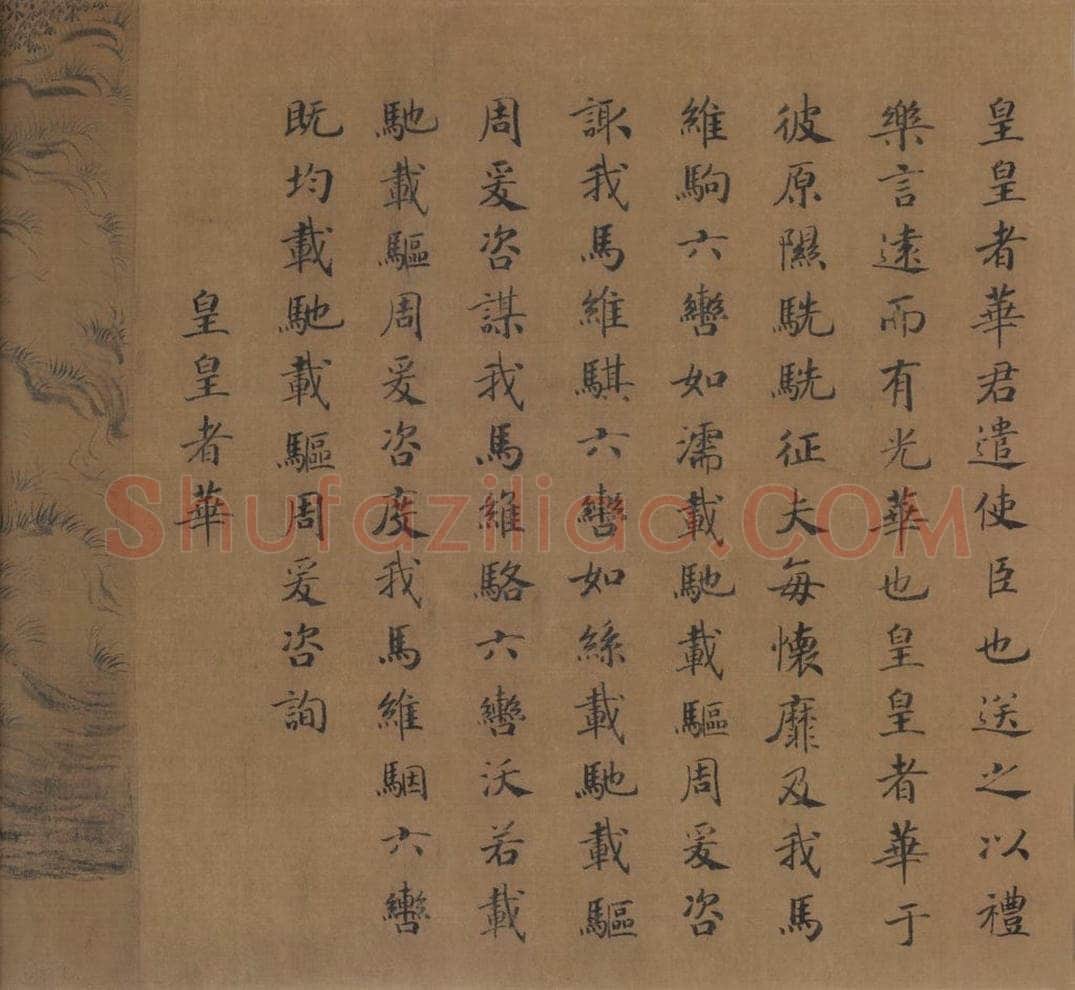 皇皇者華君遣使臣也送之以禮
樂言遠而有光華也皇皇者華于
彼原隰駪駪征夫每懷靡及我馬
維駒六轡如濡載馳載驅周爰咨
諏我馬維騏六轡如絲載馳載驅
周爰咨謀我馬維駱六轡沃若載
馳載驅周爰咨度我馬維駰六轡
既均載馳載驅周爰咨詢
皇皇者華
Shufaziliao.COM